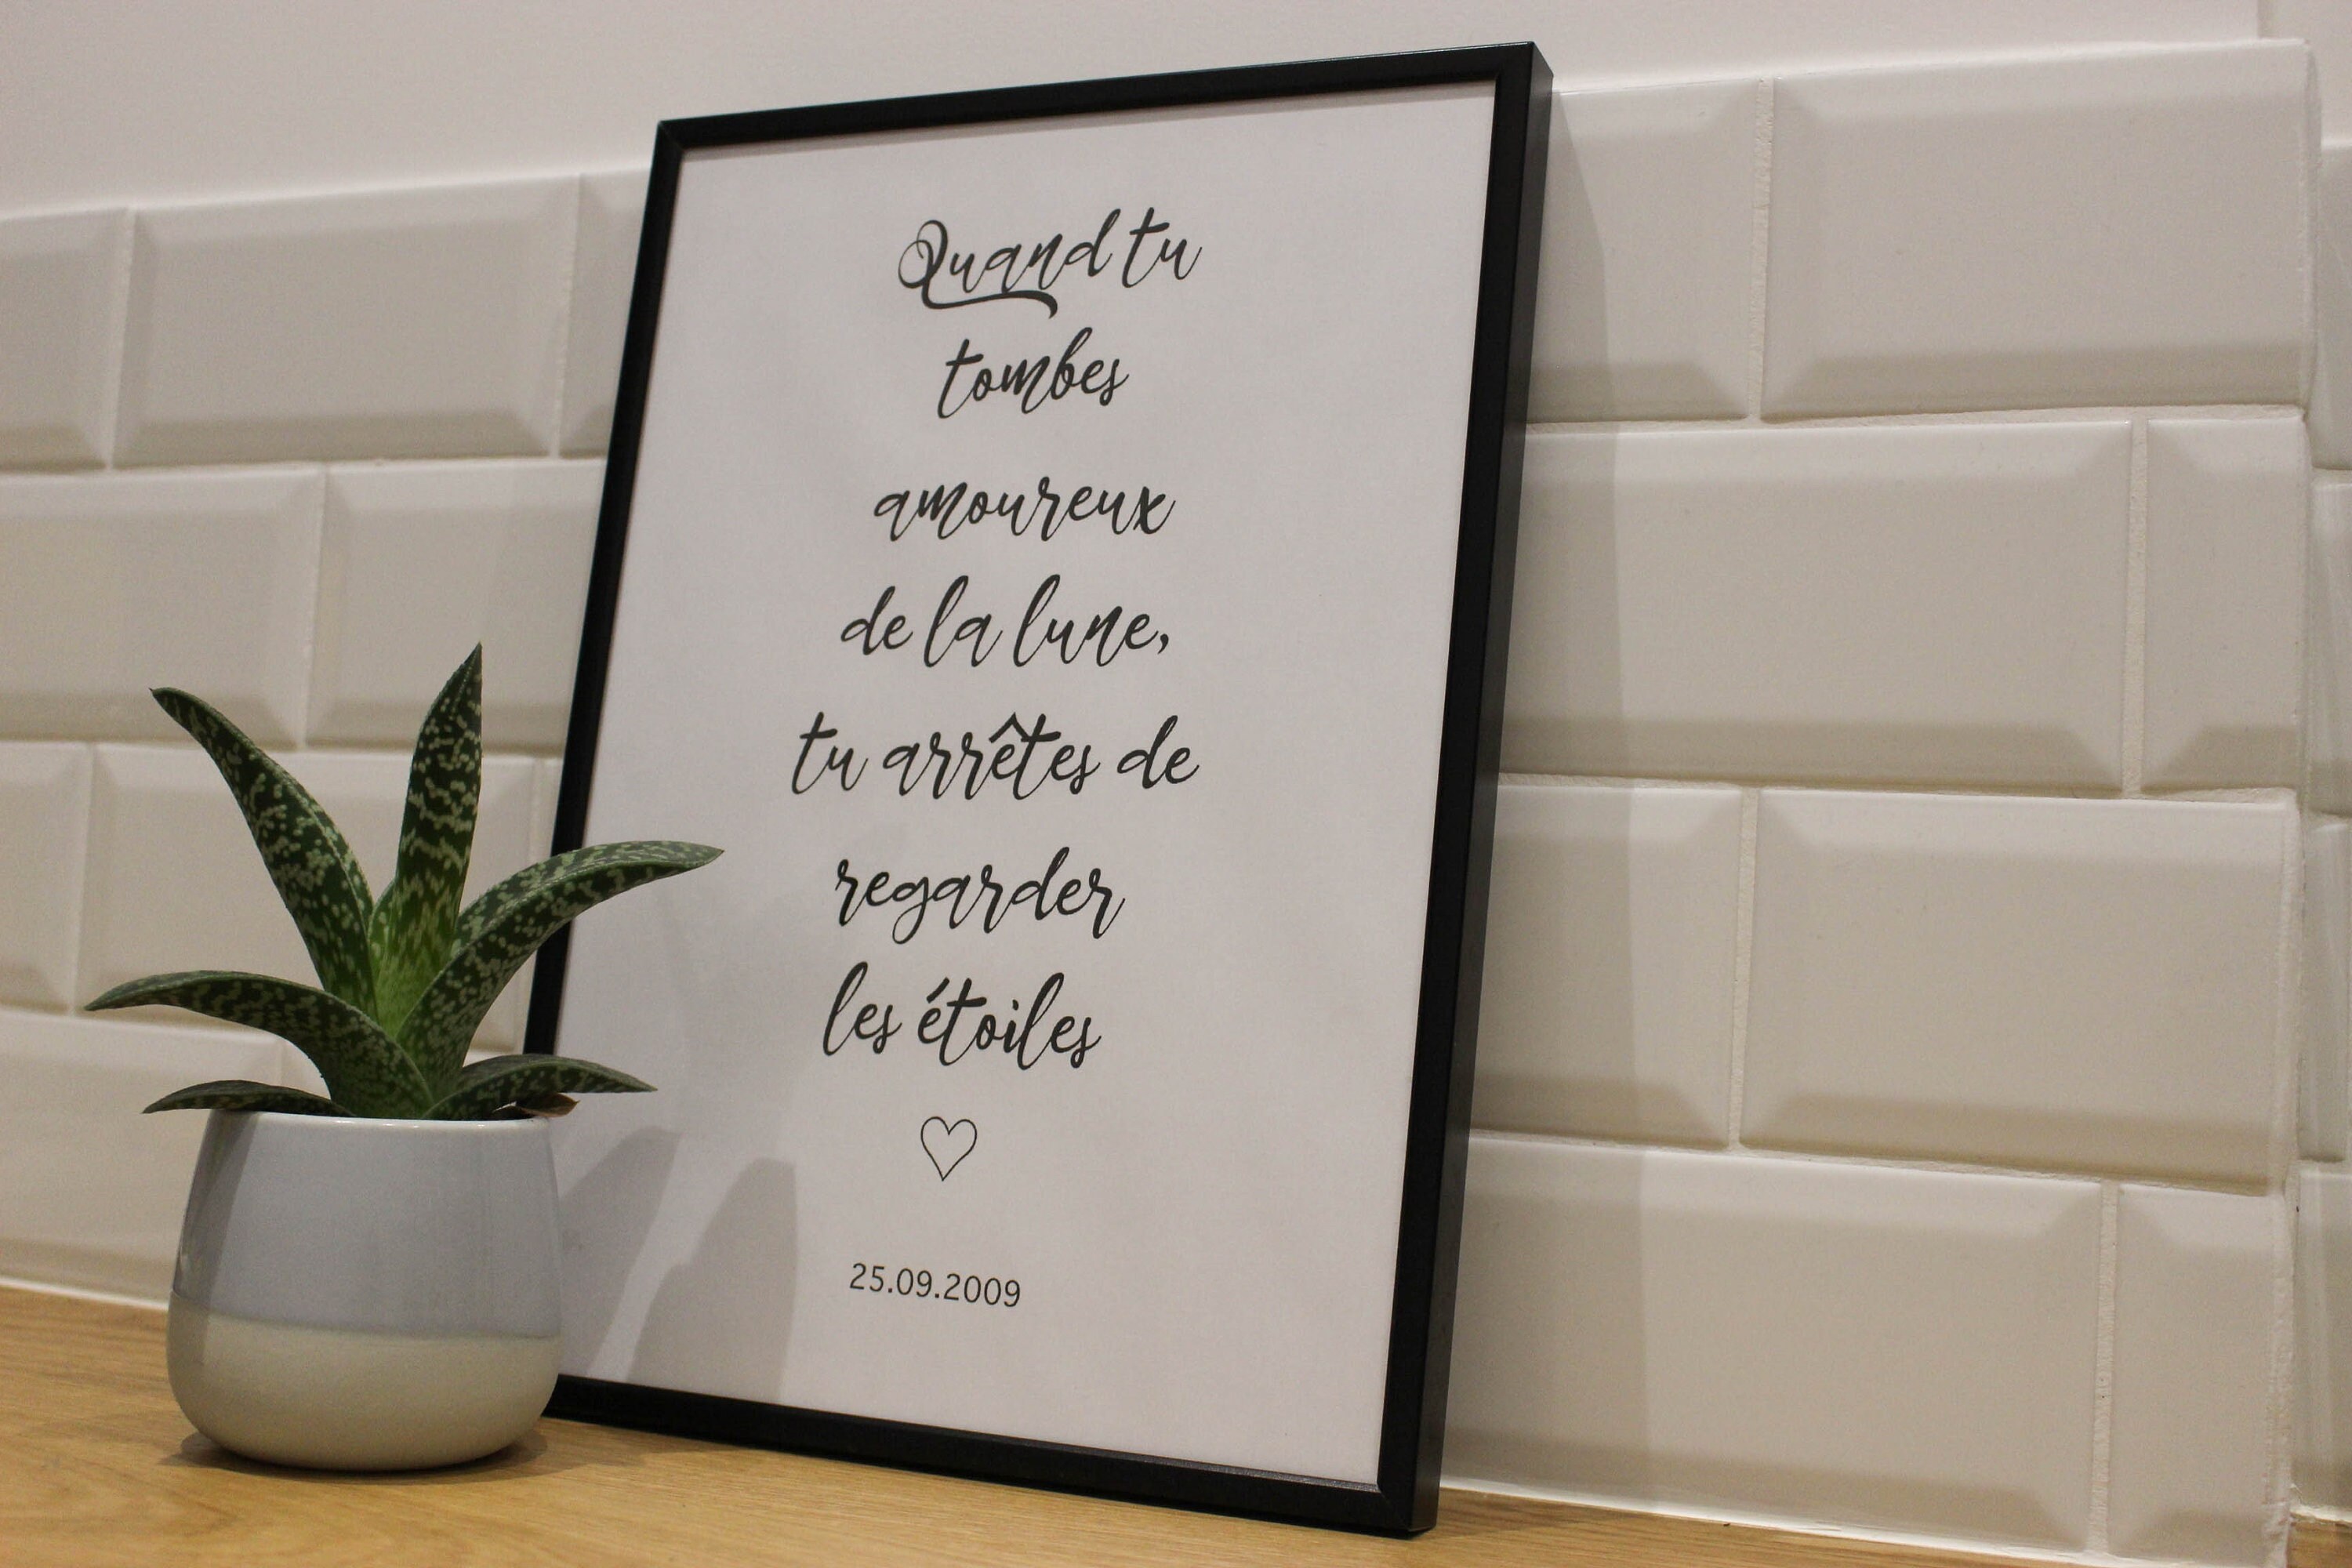 Quand tu
tombes
amoureux
de la lune,
tu arrêtes de
regarder
les étoiles
25.09.2009